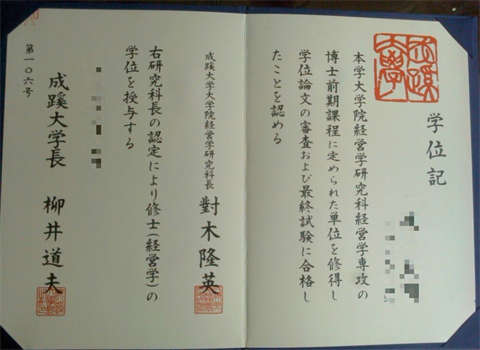 学位記
本学大学院経営学研究科経営学専攻の
博士前期課程に定められた単位を修得し
学位論文の審査および最終試験に合格し
たことを認める
成蹊大学大学院経営学研究科長
對木隆英
右研究科長の認定により修士(経営学)の
学位を授与する
成蹊大学長 柳井道夫
第一〇六号
成蹊
大學